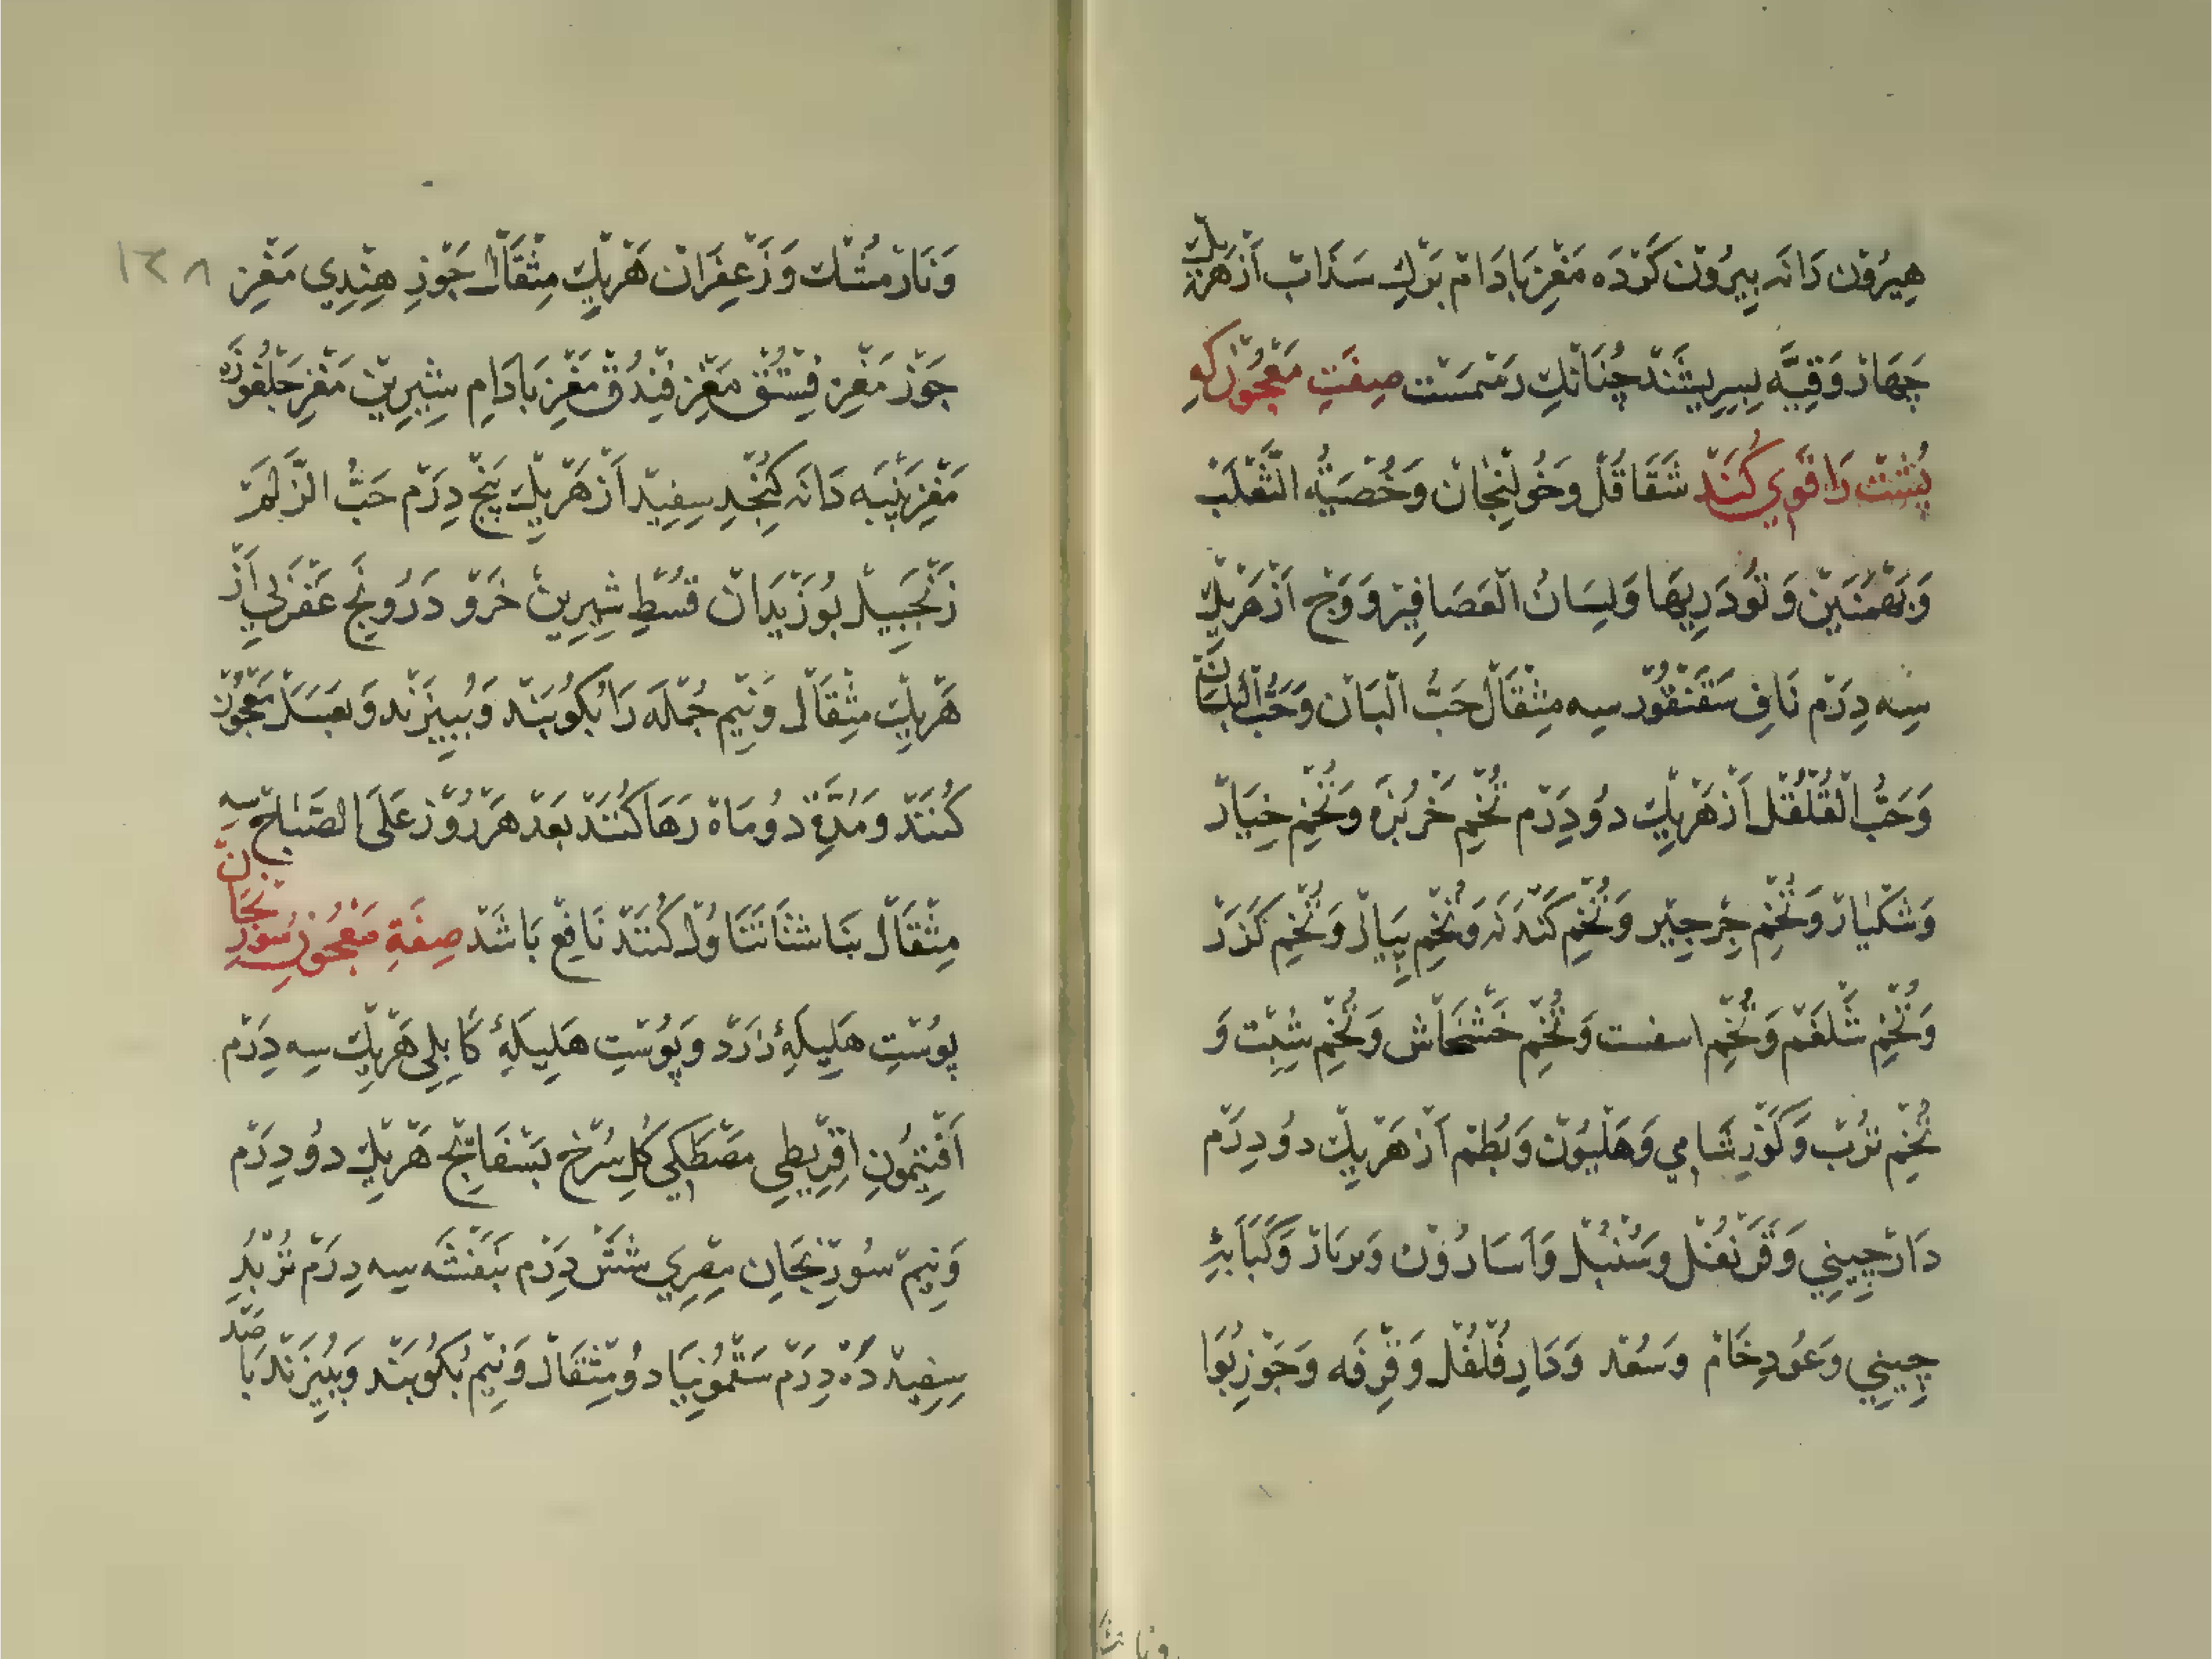 هِيرُون دَانَه بِيرُون كَرْدَه مَغْزِ بَادَامْ بَرْكِ سَدَابْ اَزْ هَرْيَك
چَهَارْ وَقِيَّه بِسِرِيشَنْدْ چُنَانْكِ رَسْمَسْت صِفَتِ مَعْجُونْ كِه
پُشْتْ رَا قَوِي كُنَدْ شَقَاقُلْ وَخُولِنْجَانْ وَخُصْيَةُ الثَّعْلَبْ
وَبَهْمَنَيْن وَتُودَرِيهَا وَلِسَانُ الْعَصَافِيْر وَوَجْ اَزْ هَرْيَكْ
سِه دِرَمْ نَافِ سَقَنْقُوْر سِه مِثْقَالْ حَبُّ الْبَانْ وَحَبُّ الْبَلَسَانْ
وَحَبُّ الْقُلْقُلْ اَزْ هَرْيَكْ دُو دِرَمْ تُخْمِ خَرْبُزَه وَتُخْمِ خِيَارْ
وَتُخْمِ جِرْجِيْر وَتُخْمِ كَنْدَنَه وَتُخْمِ پِيَازْ وَتُخْمِ كَزَرْ
وَتُخْمِ شَلْغَمْ وَتُخْمِ اسفست وَتُخْمِ خَشْخَاشْ وَتُخْمِ شِبِتْ وَ
تُخْمِ تُرُبْ وَكَوْزِ شَامِي وَهَلْيُونْ وَبُطْم اَزْ هَرْيَكْ دُو دِرَمْ
دَارْچِينِي وَقَرَنْفُلْ وَسُنْبُلْ وَاَسَارُوْن وَبَرْبَازْ وَكَبَابَهٔ
چِينِي وَعُودِ خَامْ وَسُعْد وَدَارِ فُلْفُلْ وَقِرْفَه وَجَوْزِ بُوَا
١٢٨
وَنَارْمُشْك وَزَعْفِرَانْ هَرْيَكْ مِثْقَالْ جَوْزِ هِنْدِي مَغْزِ
جَوْزْ مَغْزِ فِسْتُقْ مَغْزِ فِنْدُقْ مَغْزِ بَادَامِ شِيرِينْ مَغْزِ جَلْغُوزَه
مَغْزِ پَنْبَه دَانَه كُنْجِدِ سِفِيدْ اَزْ هَرْيَكْ پَنْج دِرَمْ حَبُّ الزَّلَمْ
زَنْجَبِيلْ بُوزِيدَانْ قُسْطِ شِيرِينْ خَرْوْ دَرُونَجِ عَقْرَبِي اَزْ
هَرْيَكْ مِثْقَالْ وَنِيم جُمْلَه رَا بُكُوبَنْد وَبِبِيزَنْد وَبَعَسَلْ مَعْجُونْ
كُنَنْدْ وَمُدَّةِ دُو مَاهْ رَهَا كُنَنْدْ بَعْد هَرْ رُوْز عَلَى الصَّبَاحْ سِه
مِثْقَالْ بنَاشْتَا تَنَاوُلْ كُنَنْدْ نَافِعْ بَاشَدْ صِفَةِ مَعْجُونِ سُورَنْجَانْ
پُوسْتِ هَلِيلَهٔ زَرْد وَپُوسْتِ هَلِيلَهٔ كَابِلِي هَرْيَكْ سِه دِرَمْ
اَفْتِيمُونِ اِقْرِيطِي مَصْطَكِي كُلِ سُرْخ بَسْفَايِجْ هَرْيَكْ دُو دِرَمْ
وَنِيمْ سُورِنْجَانِ مِصْرِي شَشْ دِرَمْ بَنَفْشَه سِه دِرَمْ تُرْبُدِ
سِفِيدْ دَهْ دِرَمْ سَقْمُونِيَا دُو مِثْقَالْ وَنِيم بُكُوبَنْد وَبِبِيزَنْد بَا صَدْ